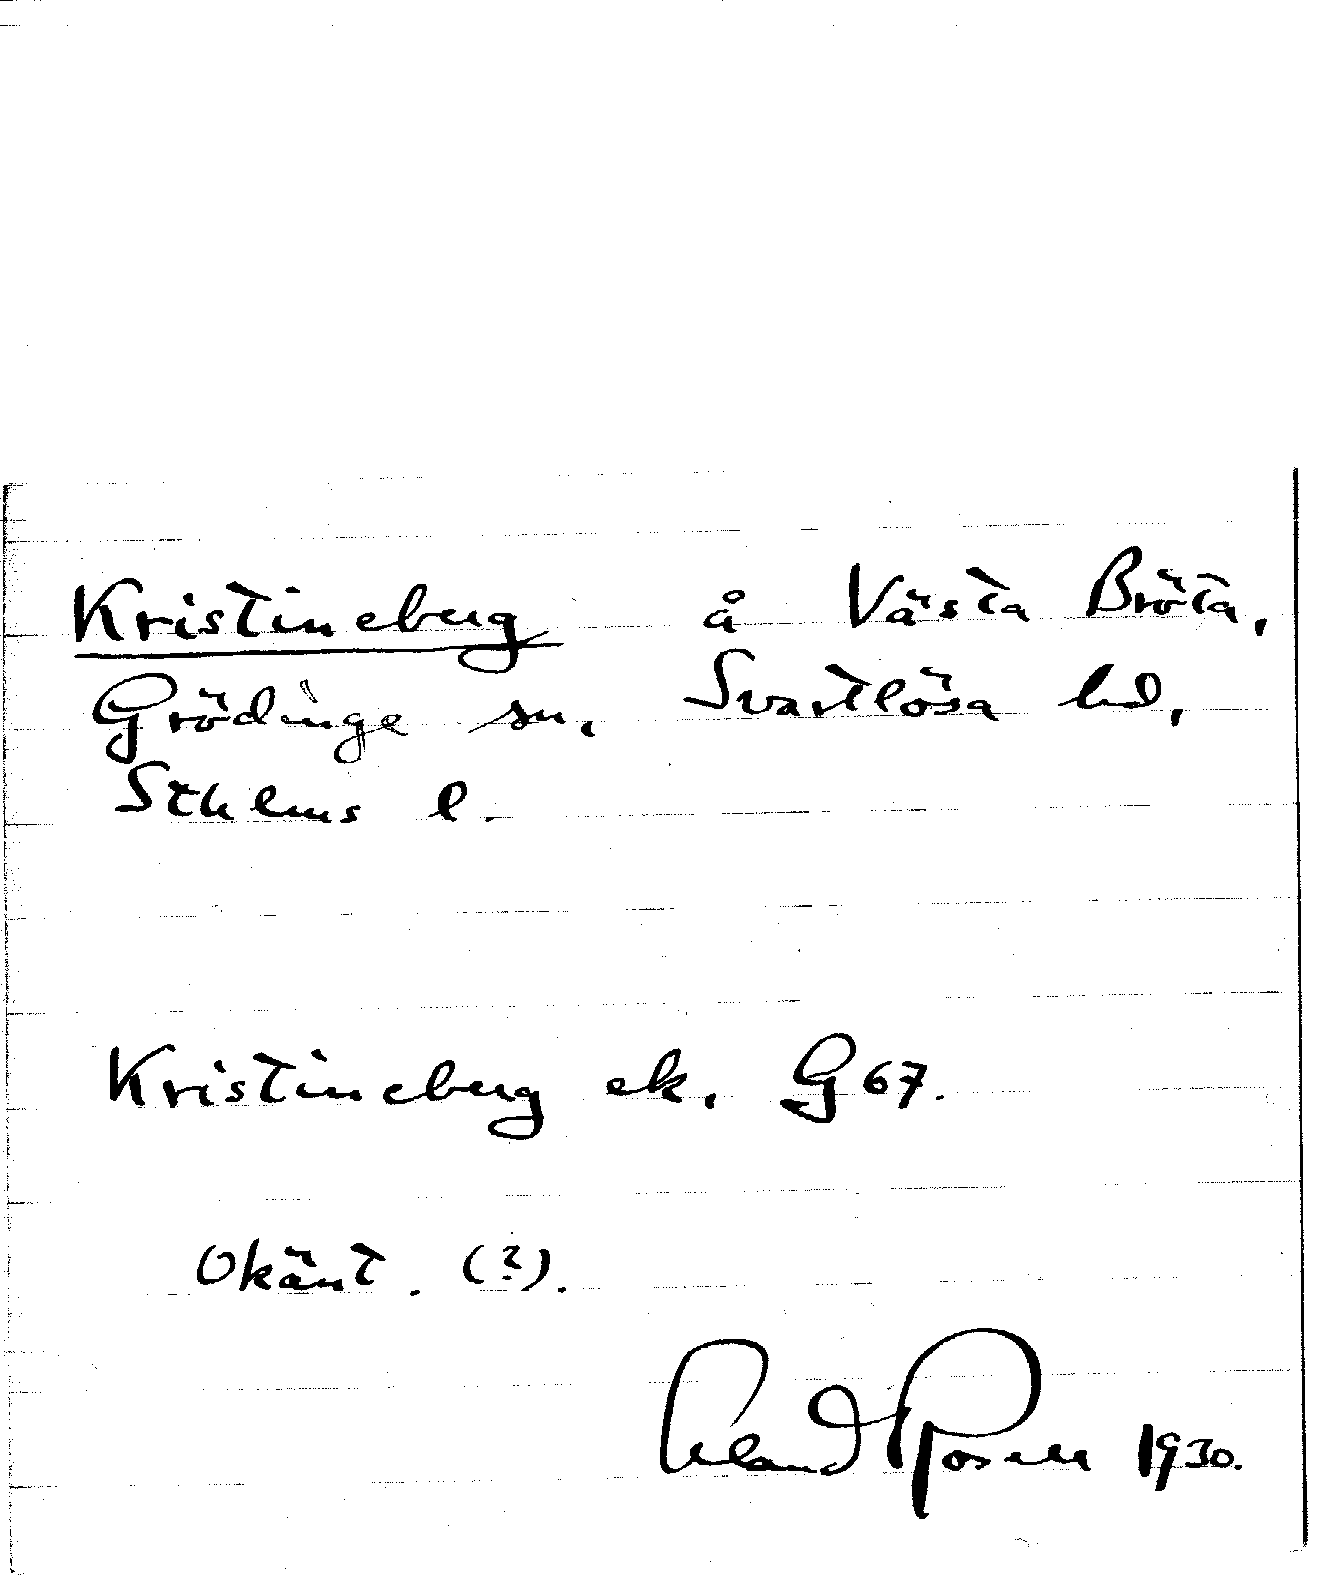 Kristineberg å Västa Bröta,
Grödinge sn, Svartlösa hd,
Sthlms l.
Kristineberg ek. G 67.
Okänt. (?).
Erland Rosell 1930.